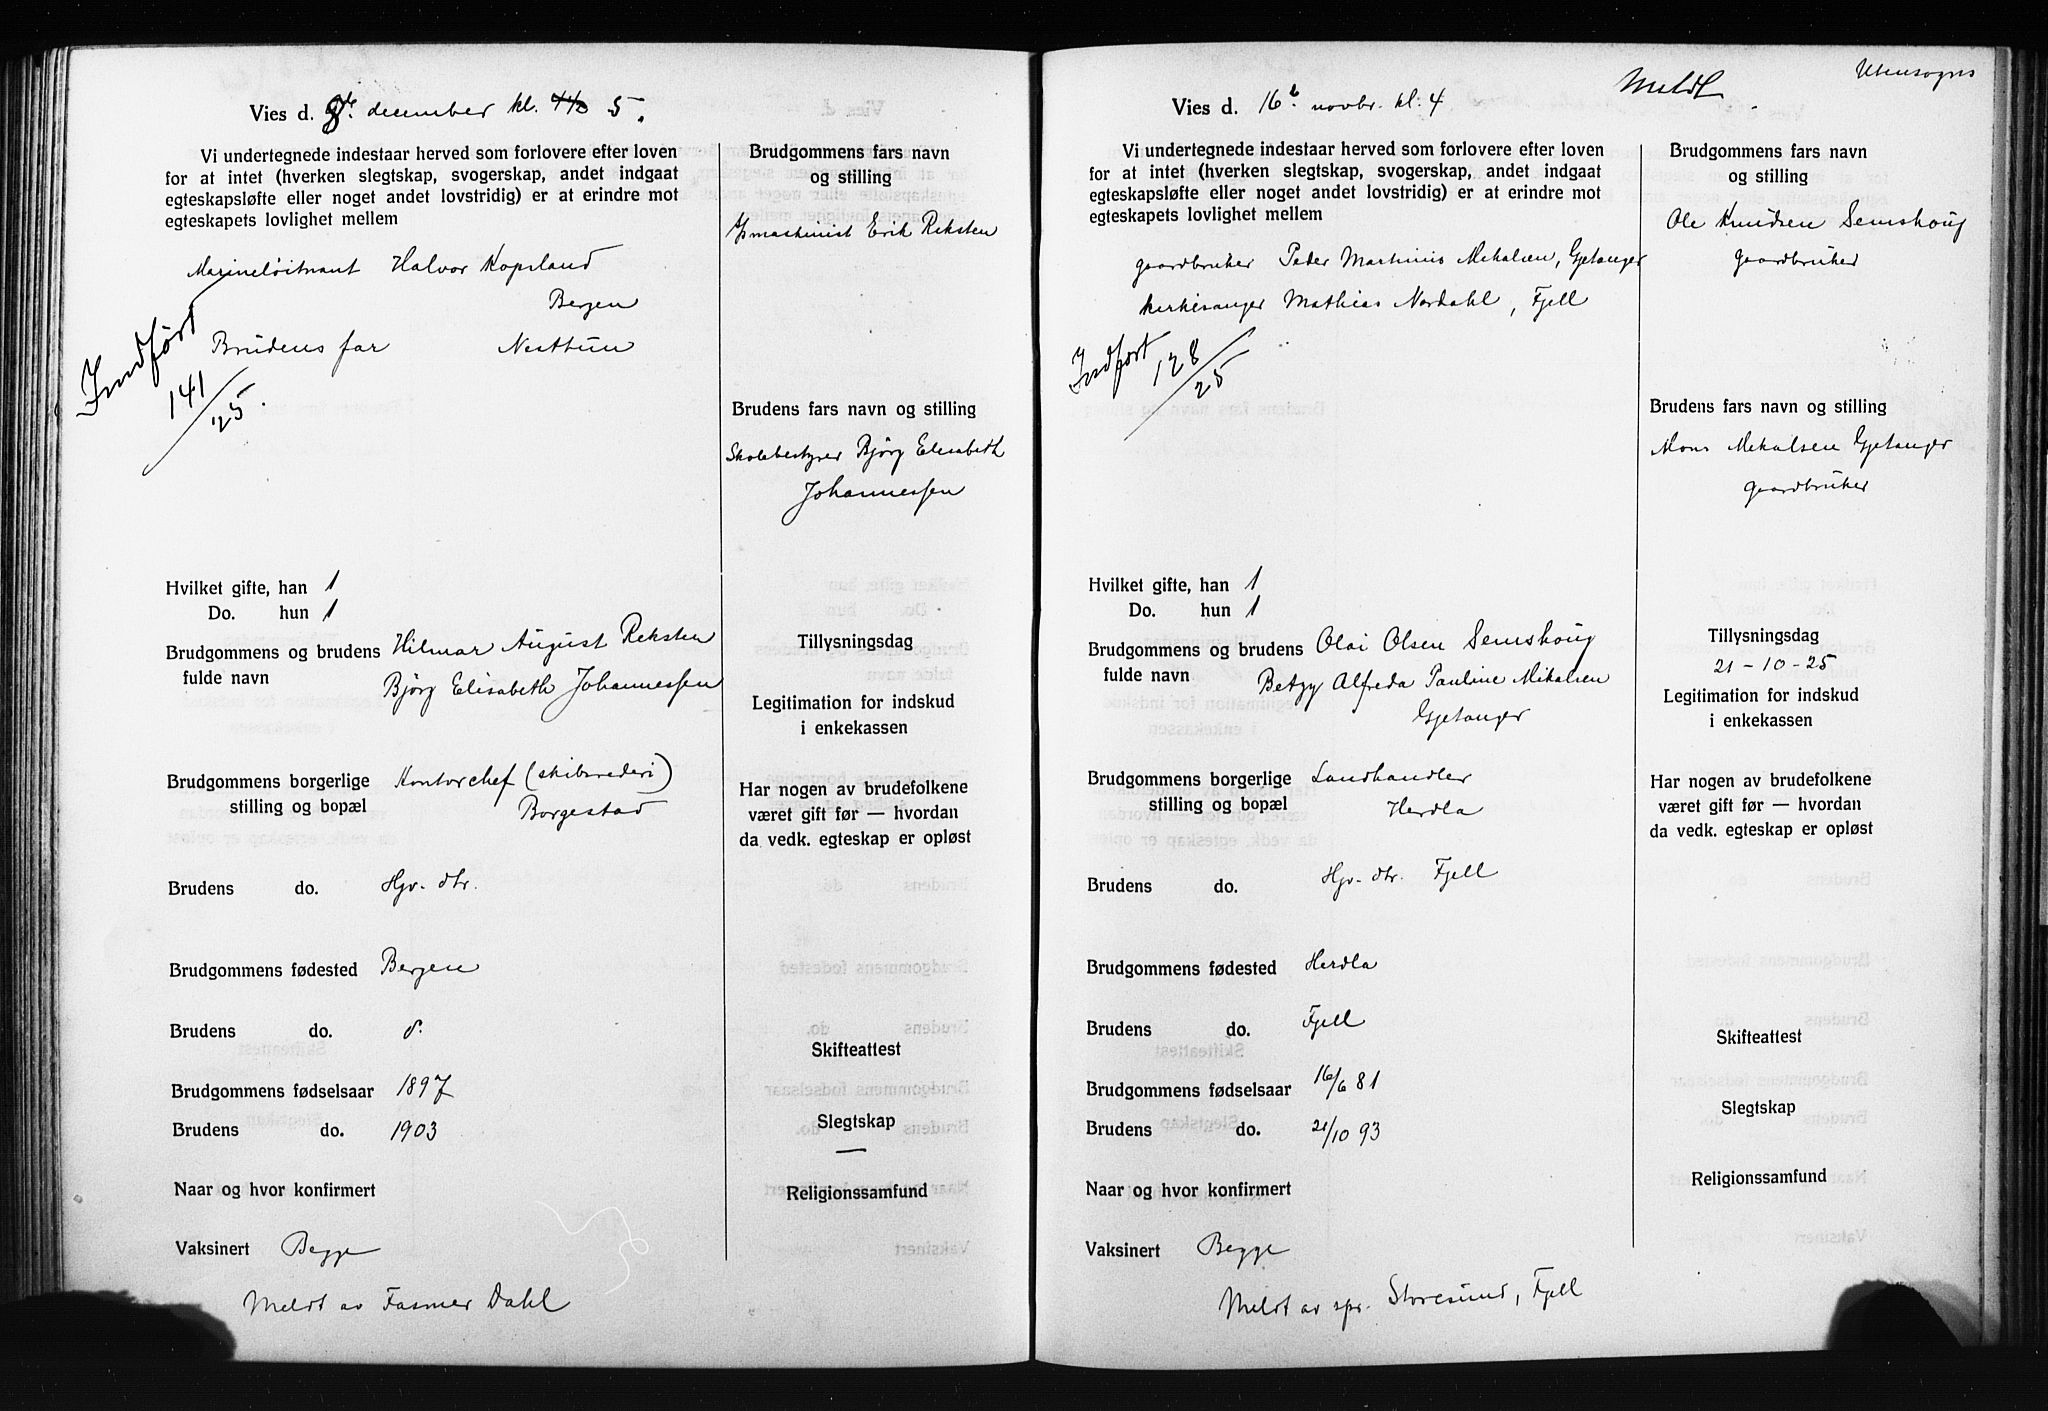 Vies d. 9de. december kl. 4½ 5.
Vi undertegnede indestaar herved som forlovere efter loven
for at intet (hverken slegtskap, svogerskap, andet indgaat
egteskapsløfte eller noget andet lovstridig) er at erindre mot
egteskapets lovlighet mellem
Marineløitnant Halvor Kopsland
Bergen
Brudens far Nesttun
Indført
141/25.
Hvilket gifte, han 1
Do. hun 1
Brudgommens og brudens Hilmar August Reksten
fulde navn Bjørg Elisabeth Johannessen
Brudgommens borgerlige Kontorchef (skibsrederi)
stilling og bopæl Borgestad
Brudens do. Hjv. dtr.
Brudgommens fødested Bergen
Brudens do.
Brudgommens fødselsaar 1897
Brudens do. 1903
Naar og hvor konfirmert
Vaksinert Begge
Meldt av Fasmer Dahl
Brudgommens fars navn
og stilling
maskinist Erik Reksten
Brudens fars navn og stilling
Skolebestyrer Bjørg Elisabeth
Johannessen
Tillysningsdag
Legitimation for indskud
i enkekassen
Har nogen av brudefolkene
været gift før — hvordan
da vedk. egteskap er opløst
Skifteattest
Slegtskap
—
Religionssamfund
Utensogns
Meldt
Vies d. 16 novbr. kl. 4
Vi undertegnede indestaar herved som forlovere efter loven
for at intet (hverken slegtskap, svogerskap, andet indgaat
egteskapsløfte eller noget andet lovstridig) er at erindre mot
egteskapets lovlighet mellem
gaardbruker Peder Martinus Mikalsen, Gjetanger
kirkesanger Mathias Nordahl, Fjell
Indført
128/25
Hvilket gifte, han 1
Do. hun 1
Brudgommens og brudens Olai Olsen Semshoug
fulde navn Betzy Alfreda Pauline Mikalsen
Gjetanger
Brudgommens borgerlige Landhandler
stilling og bopæl Herdla
Brudens do. Hjv. dtr. Fjell
Brudgommens fødested Herdla
Brudens do. Fjell
Brudgommens fødselsaar 16/6 81
Brudens do. 21/10 93
Naar og hvor konfirmert
Vaksinert Begge
Meldt av spr. Storesund, Fjell
Brudgommens fars navn
og stilling
Ole Knudsen Semshoug
gaardbruker
Brudens fars navn og stilling
Mons Mikalsen Gjetanger
gaardbruker
Tillysningsdag
21-10-25
Legitimation for indskud
i enkekassen
Har nogen av brudefolkene
været gift før — hvordan
da vedk. egteskap er opløst
Skifteattest
Slegtskap
Religionssamfund